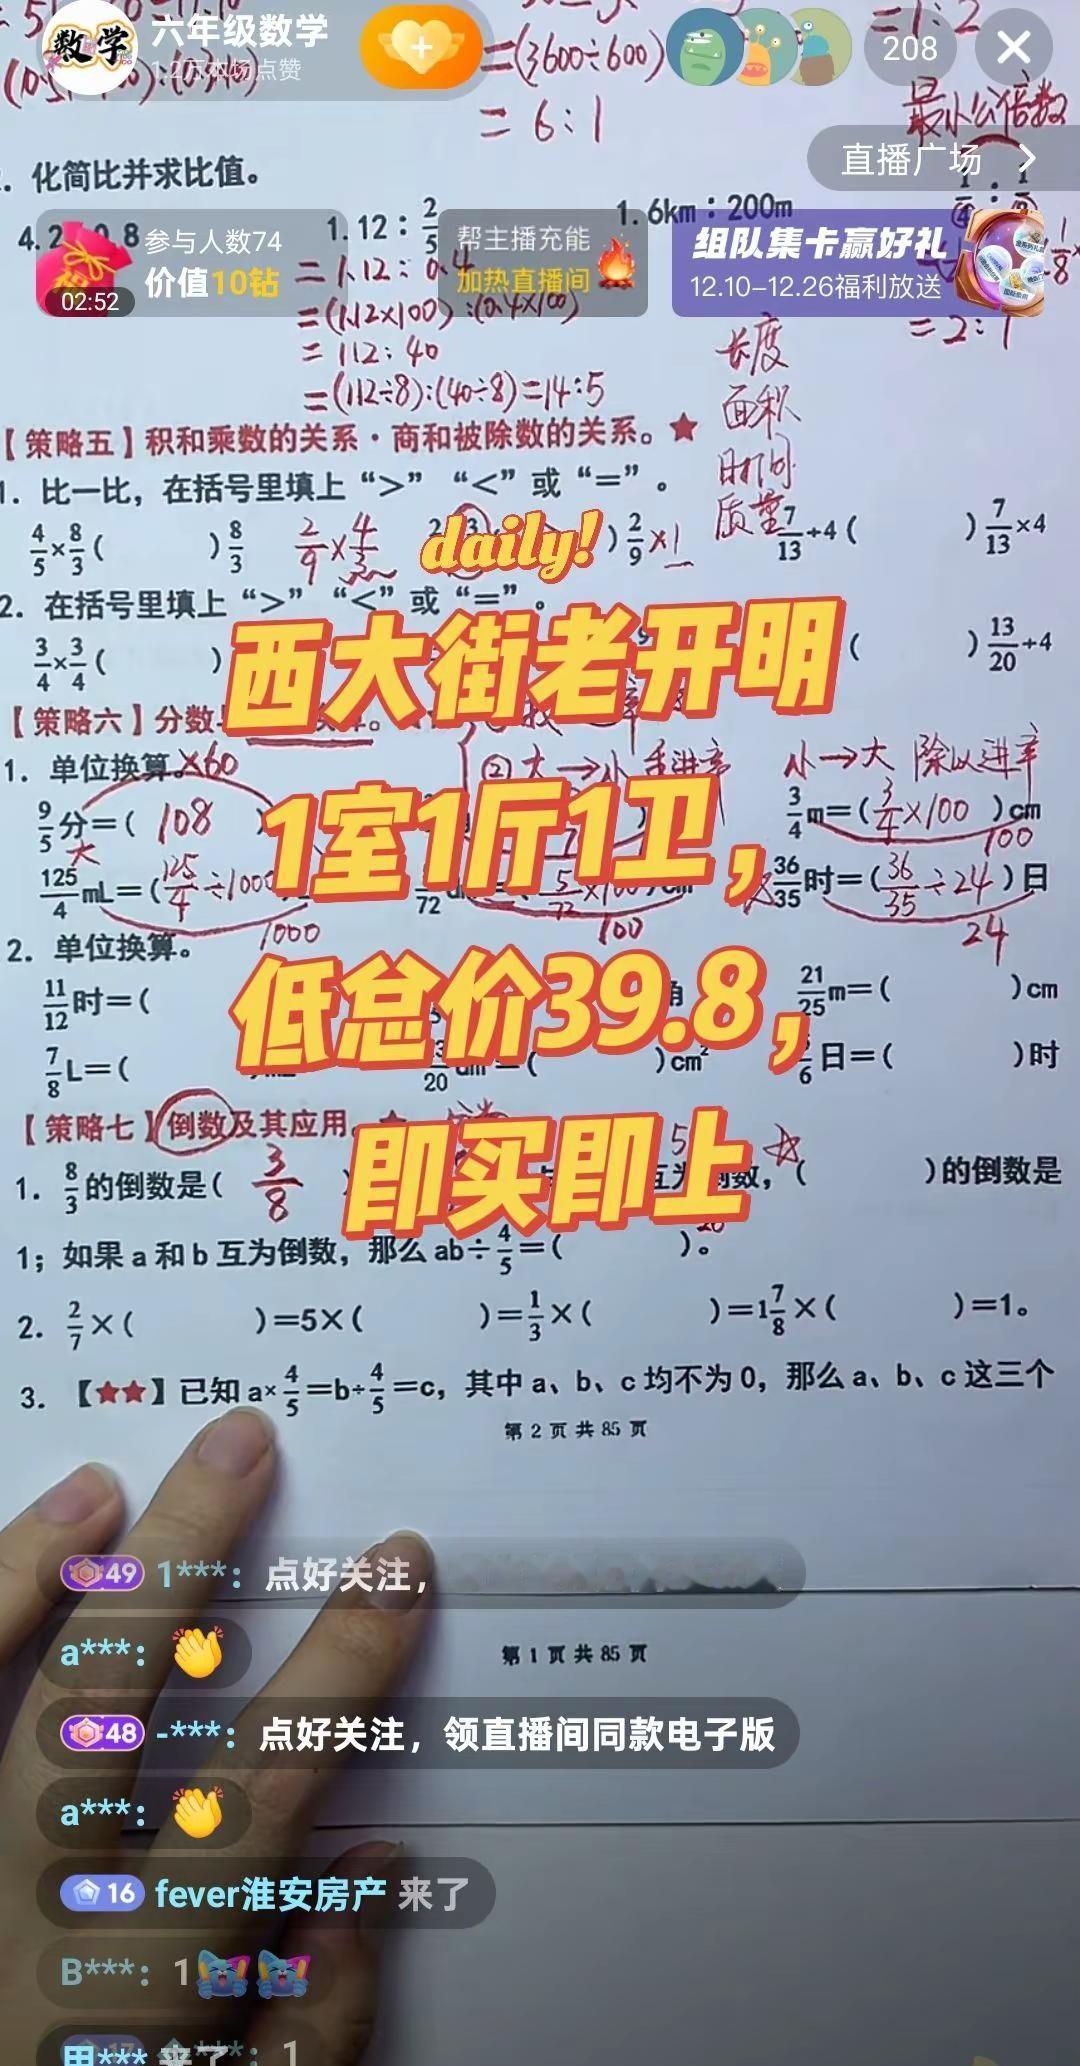 六年级数学
1.2万本场点赞
208
=1:2
=(3600÷600)
=6:1
最小公倍数
直播广场
化简比并求比值。
1.12:2/5
1.6km:200m
参与人数74
价值10钻
02:52
帮主播充能
加热直播间
组队集卡赢好礼
12.10-12.26福利放送
=1.12:0.4
=(1.12×100):(0.4×100)
=112:40
=(112÷8):(40÷8)=14:5
=2:1
长度
面积
时间
质量
【策略五】积和乘数的关系·商和被除数的关系。★
1. 比一比，在括号里填上“>”“<”或“=”。
4/5×8/3( )8/3
2/9×4/3
)2/9×1
7/13÷4( )7/13×4
daily!
2. 在括号里填上“>”“<”或“=”。
3/4×3/4( )
( )13/20÷4
西大街老开明
【策略六】分数
1. 单位换算。×60
②大→小 乘进率
小→大 除以进率
9/5分=(108
3/4m=(3/4×100)cm
100
大
1室1厅1卫，
125/4mL=(125/4÷1000
1000
100
36/35时=(36/35÷24)日
24
2. 单位换算。
11/12时=(
角
21/25m=( )cm
低总价39.8，
7/8L=(
)cm²
日=( )时
【策略七】倒数及其应用。
1. 8/3的倒数是( 3/8
互为倒数，( )的倒数是
即买即上
1；如果a和b互为倒数，那么ab÷4/5=( )。
2. 2/7×( )=5×( )=1/3×( )=1 7/8×( )=1。
3. 【★★】已知a×4/5=b÷4/5=c，其中a、b、c均不为0，那么a、b、c这三个
第 2 页 共 85 页
49 1***：点好关注，
a***：
第 1 页 共 85 页
48 -***：点好关注，领直播间同款电子版
a***：
16 fever淮安房产 来了
B***：1